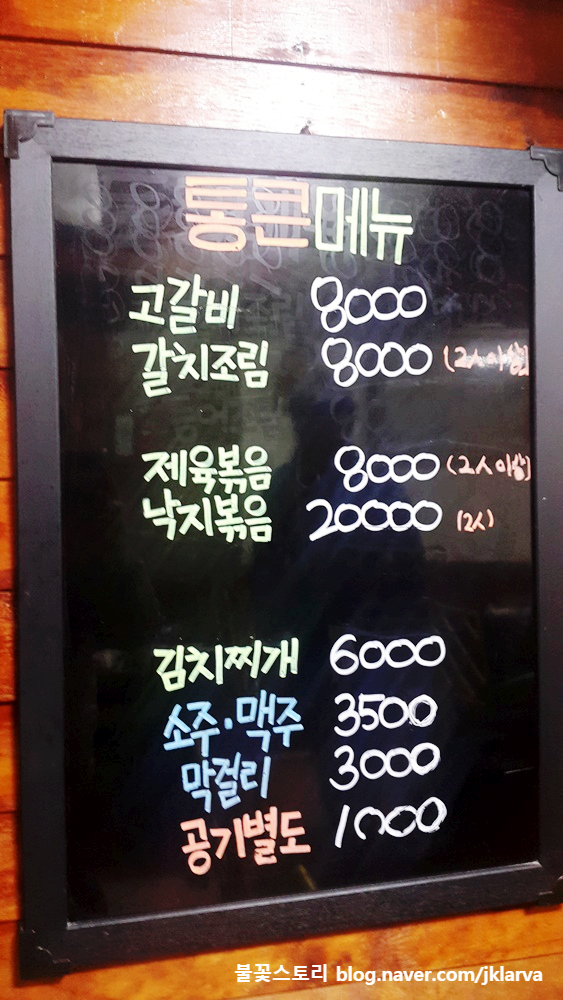 통큰메뉴
고갈비 8000
갈치조림 8000 (2人이상)
제육볶음 8000 (2人이상)
낙지볶음 20000 (2人)
김치찌개 6000
소주·맥주 3500
막걸리 3000
공기별도 1000
불꽃스토리 blog.naver.com/jklarva